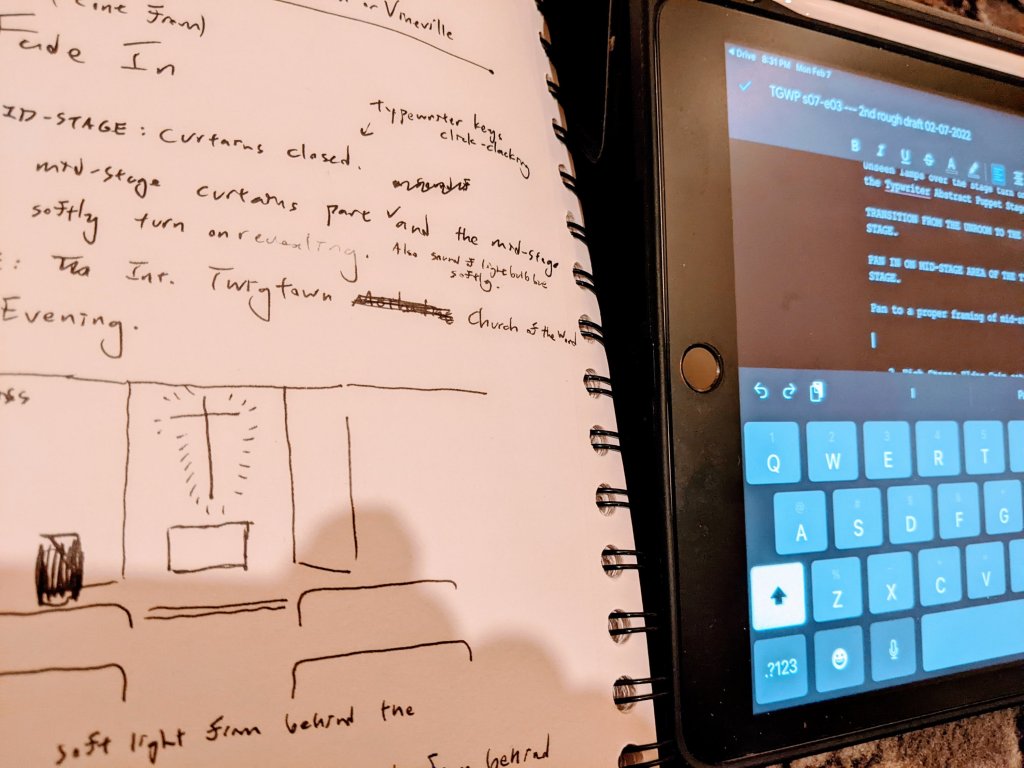 or Vineville
Fade In
typewriter keys
click-clacking
ID-STAGE: Curtains closed.
mid-stage curtains part and the mid-stage
softly turn on revealing.
Also sound of light bulb
softly.
E: Int. Twigtown Church of the Word
Evening.
soft light from behind the
from behind
Drive 8:31 PM Mon Feb 7
TGWP s07-e03 --- 2nd rough draft 02-07-2022
B I U S A
unseen lamps over the stage turn o
the Typwriter Abstract Puppet Stag
TRANSITION FROM THE UNROOM TO THE
STAGE.
PAN IN ON MID-STAGE AREA OF THE T
STAGE.
Pan to a proper framing of mid-st
1 2 3 4 5
Q W E R T
A S D F G
Z X C V
.?123